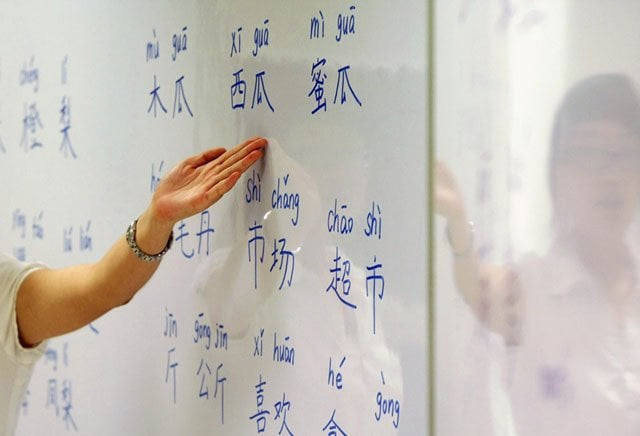 chéng lí mù guā xī guā mì guā
橙 梨 木瓜 西瓜 蜜瓜
shì chǎng chāo shì
毛丹 市场 超市
jīn gōng jīn xǐ huān hé gòng
斤 公斤 喜欢
梨